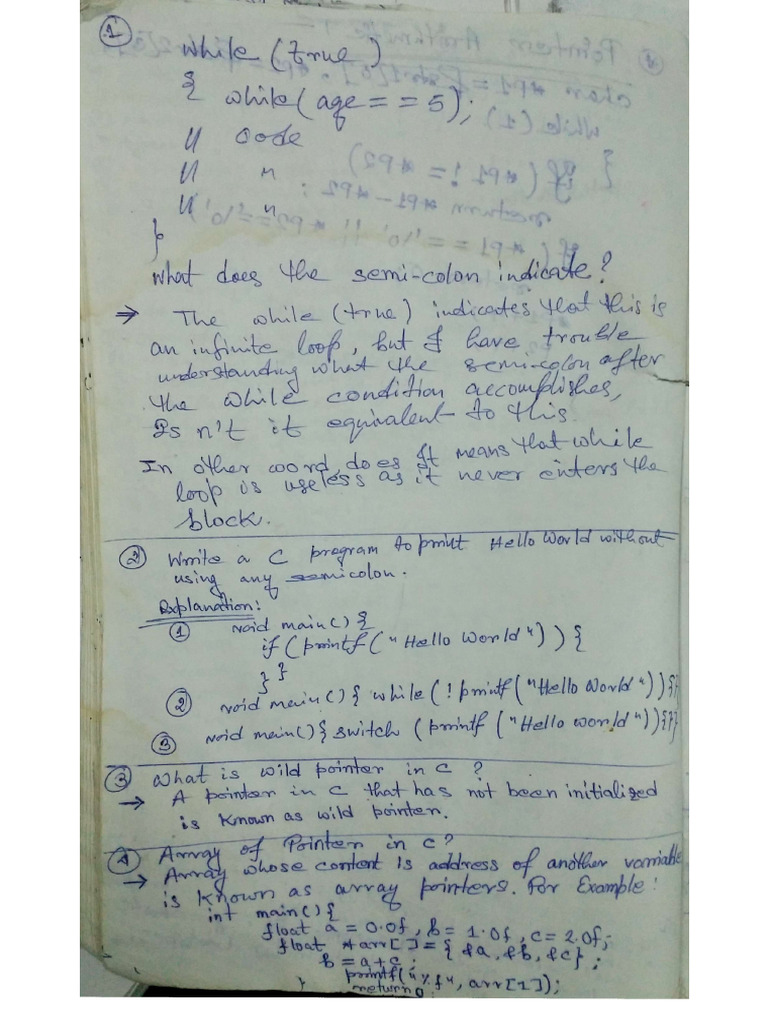 1
while (true)
{ while (age == 5);
// code
// "
// "
}
What does the semi-colon indicate?
⇒ The while (true) indicates that this is
an infinite loop, but I have trouble
understanding what the semi-colon after
the while condition accomplishes,
Is n't it equivalent to this.
In other word, does It means that while
loop is useless as it never enters the
block.
2 Write a C program to print Hello World without
using any semicolon.
Explanation:
1 void main() {
if (printf("Hello World")) {
} }
2 void main() { while (!printf("Hello World")) {}}
3 void main() { switch (printf("Hello world")) {}}
3 What is wild pointer in C ?
→ A pointer in C that has not been initialized
is known as wild pointer.
4 Array of Pointer in C?
→ Array whose content is address of another variable
is known as array pointers. For Example:
int main() {
float a = 0.0f, b = 1.0f, c = 2.0f;
float *arr[] = { &a, &b, &c};
b = a + c;
printf("%f", arr[1]);
} return 0